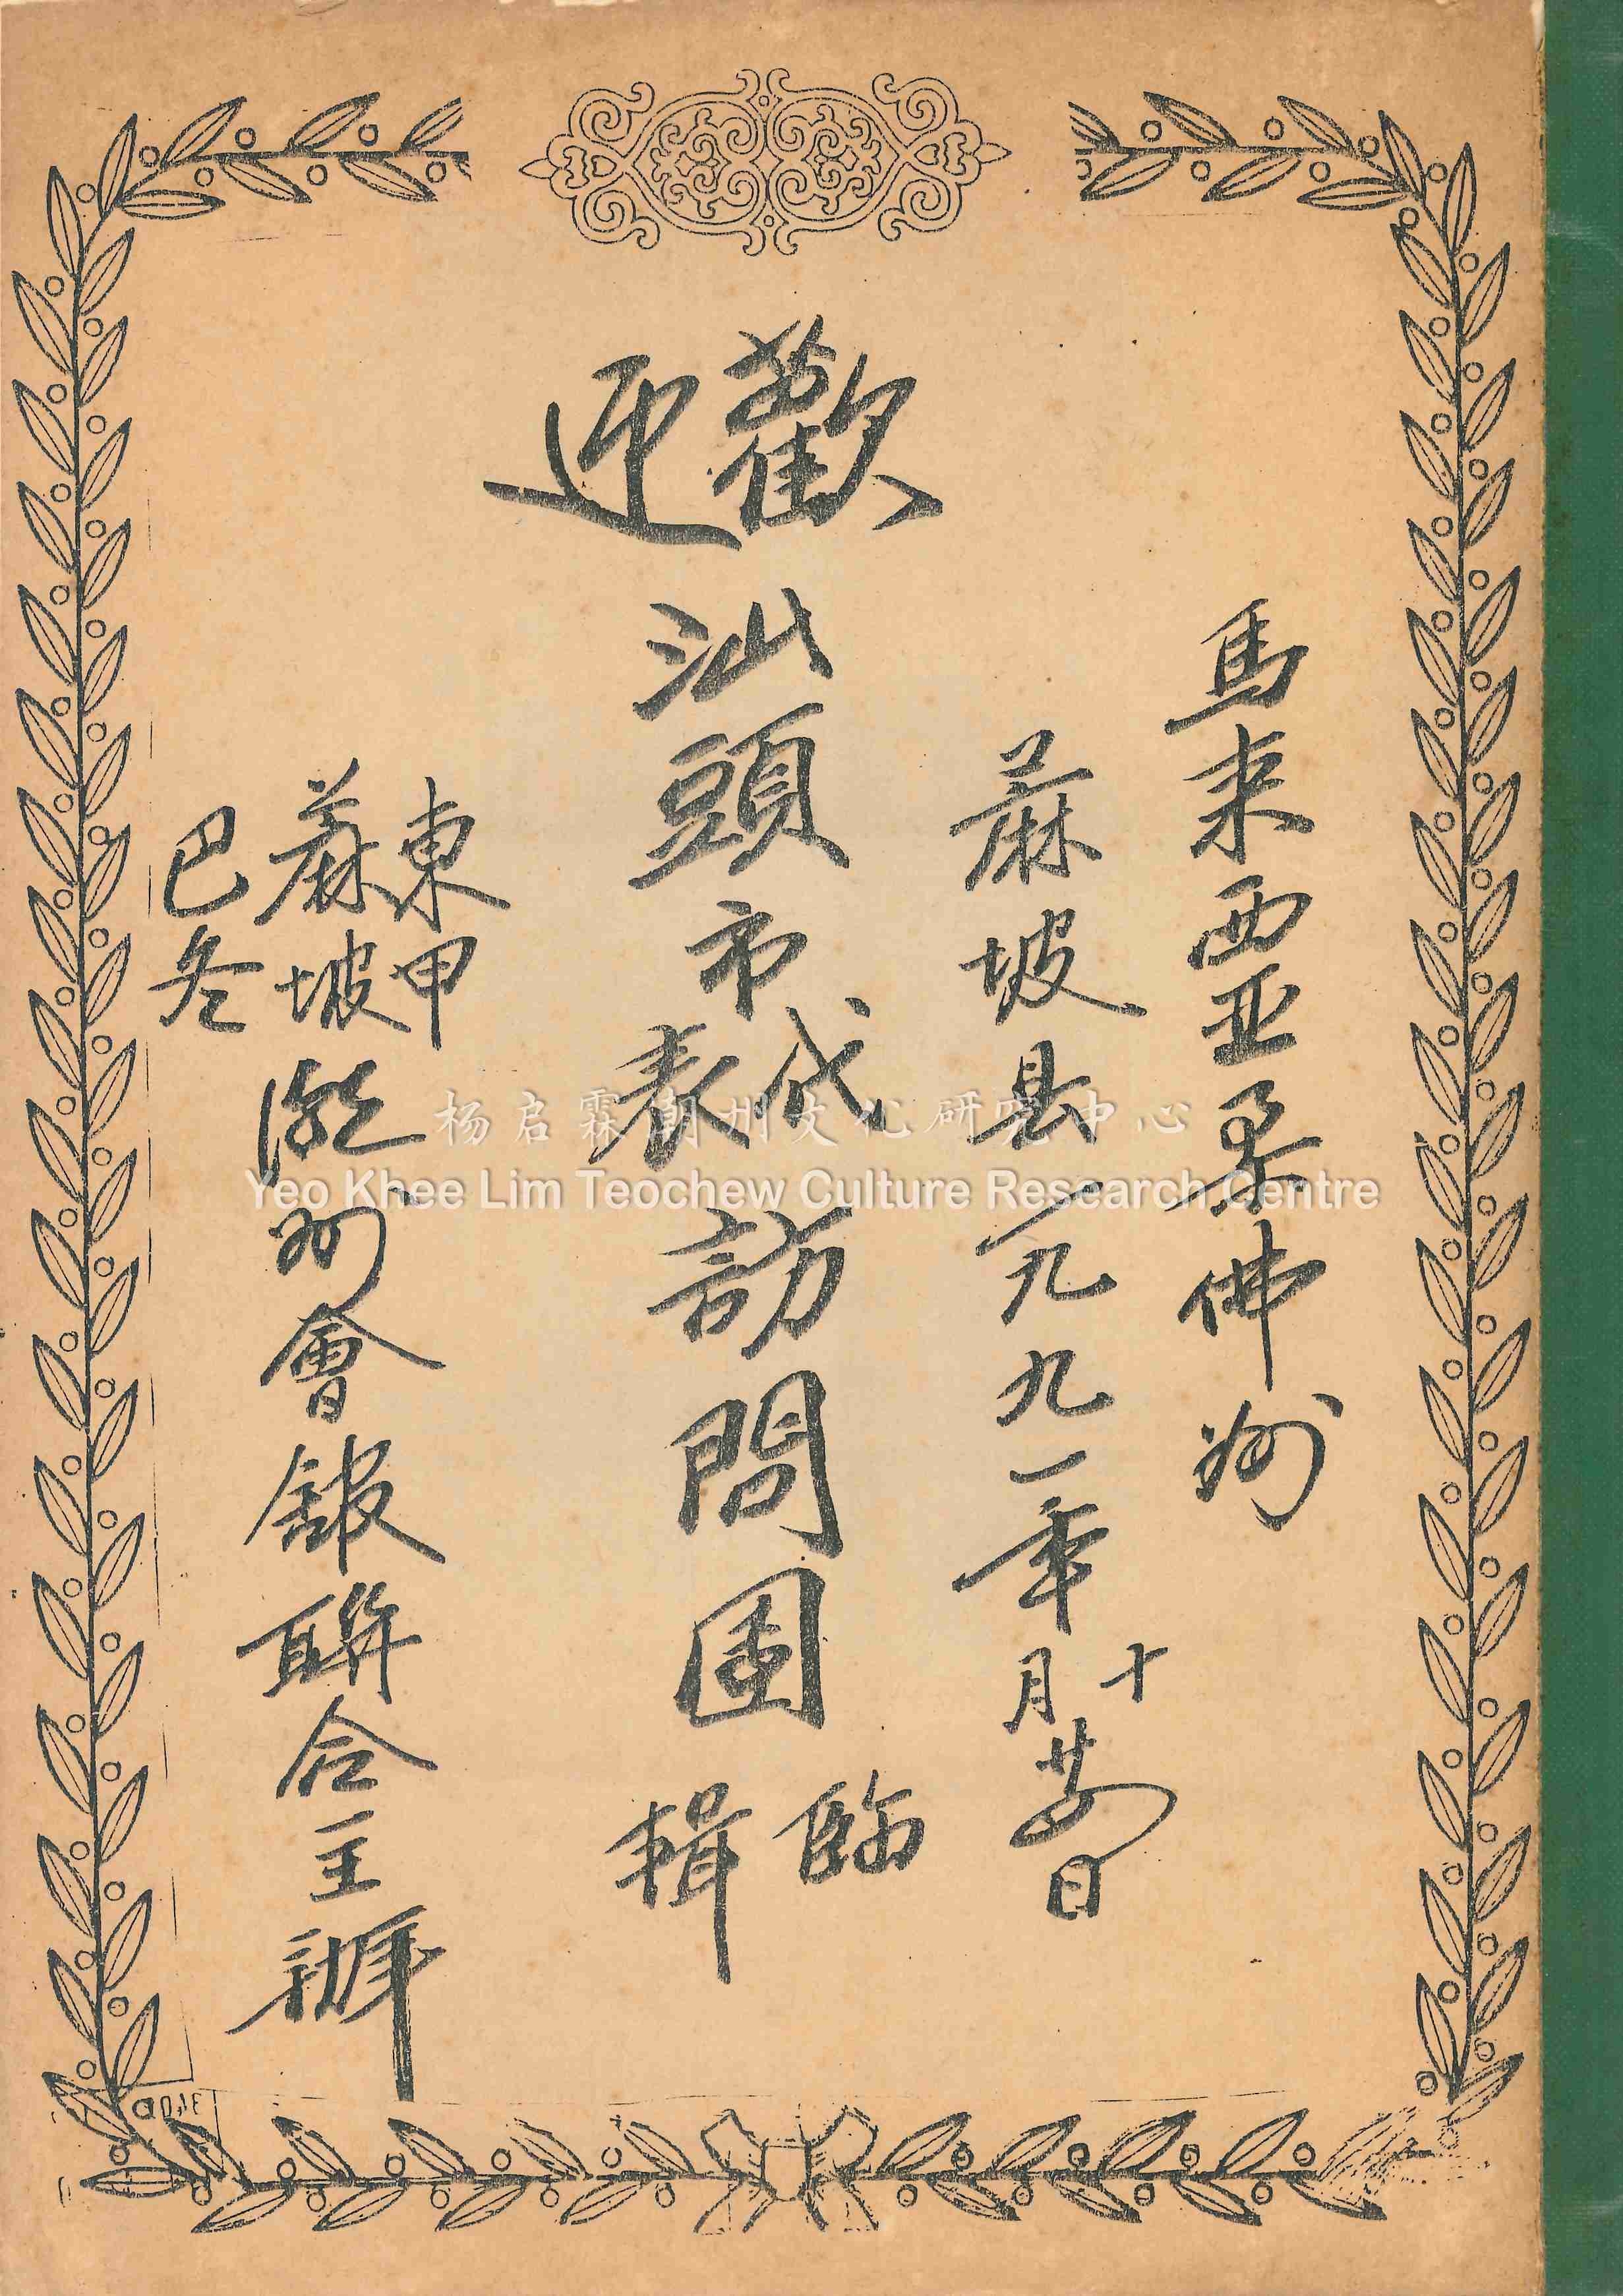 馬来西亚柔佛州
蔴坡县一九九一年十月廿四日
歡迎
汕頭市代表訪問團臨輯
東甲
蔴坡
巴冬
潮州會館聯合主辦
杨启霖潮州文化研究中心
Yeo Khee Lim Teochew Culture Research Centre